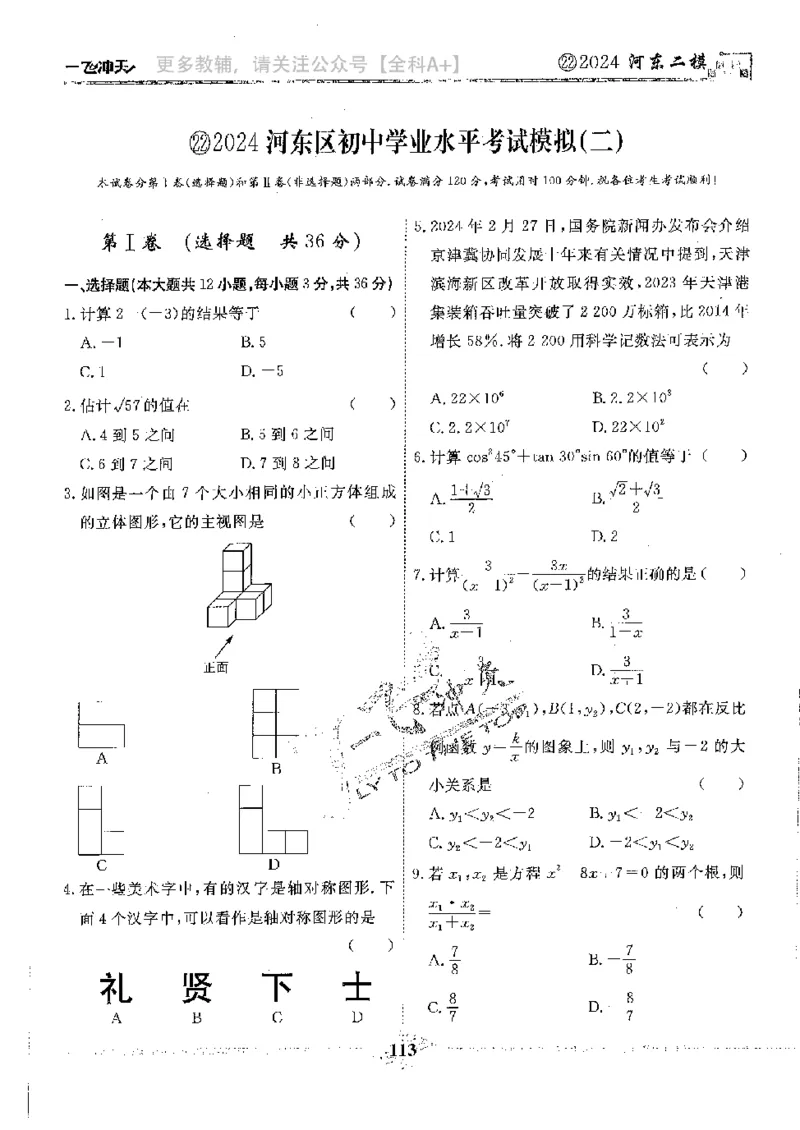 一飞冲天
更多教辅，请关注公众号【全科A+】
㉒2024 河东二模
㉒2024 河东区初中学业水平考试模拟(二)
本试卷分第Ⅰ卷(选择题)和第Ⅱ卷(非选择题)两部分.试卷满分 120 分,考试用时 100 分钟.祝各位考生考试顺利!
第Ⅰ卷 (选择题 共 36 分)
一、选择题(本大题共 12 小题,每小题 3 分,共 36 分)
1.计算 2 (-3)的结果等于 ( )
A.-1 B.5
C.1 D.-5
2.估计√57的值在 ( )
A.4 到 5 之间 B.5 到 6 之间
C.6 到 7 之间 D.7 到 8 之间
3.如图是一个由 7 个大小相同的小正方体组成
的立体图形,它的主视图是 ( )
正面
A
B
C D
4.在一些美术字中,有的汉字是轴对称图形.下
面 4 个汉字中,可以看作是轴对称图形的是
( )
礼 贤 下 士
A B C D
5.2024 年 2 月 27 日,国务院新闻办发布会介绍
京津冀协同发展十年来有关情况中提到,天津
滨海新区改革开放取得实效,2023 年天津港
集装箱吞吐量突破了 2 200 万标箱,比 2014 年
增长 58%.将 2 200 用科学记数法可表示为
( )
A.22×10⁶ B.2.2×10³
C.2.2×10⁷ D.22×10²
6.计算 cos²45°+tan 30°sin 60°的值等于 ( )
A.(1+√3)/2 B.(√2+√3)/2
C.1 D.2
7.计算 3/(x 1)²-3x/(x-1)²的结果正确的是( )
A.3/(x-1) B.3/(1-x)
C. D.3/(x+1)
8.若点 A(-3,y₁),B(1,y₂),C(2,-2)都在反比
例函数 y=k/x 的图象上,则 y₁,y₂ 与-2 的大
小关系是 ( )
A.y₁<y₂<-2 B.y₁< 2<y₂
C.y₂<-2<y₁ D.-2<y₁<y₂
9.若 x₁,x₂ 是方程 x² 8x+7=0 的两个根,则
(x₁·x₂)/(x₁+x₂)= ( )
A.7/8 B.-7/8
C.8/7 D.-8/7
113